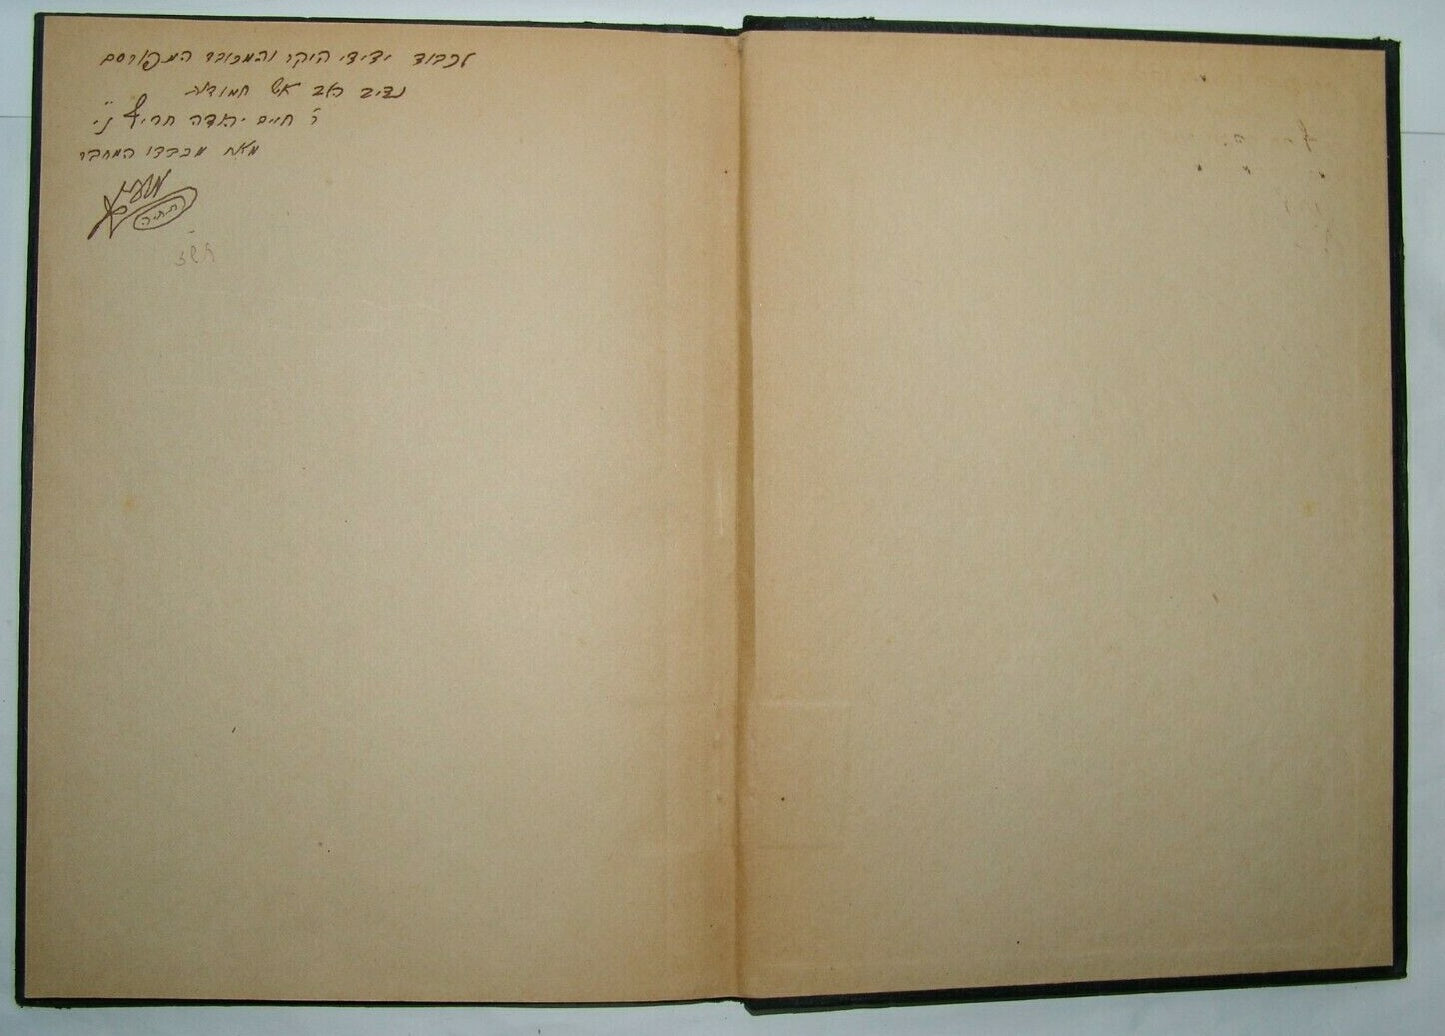 לכבוד ידידי היקר והמכובד המפורסם
נדיב לב איש חמודות
ר' חיים יהודה חריף נ"י
מאת מכבדו המחבר